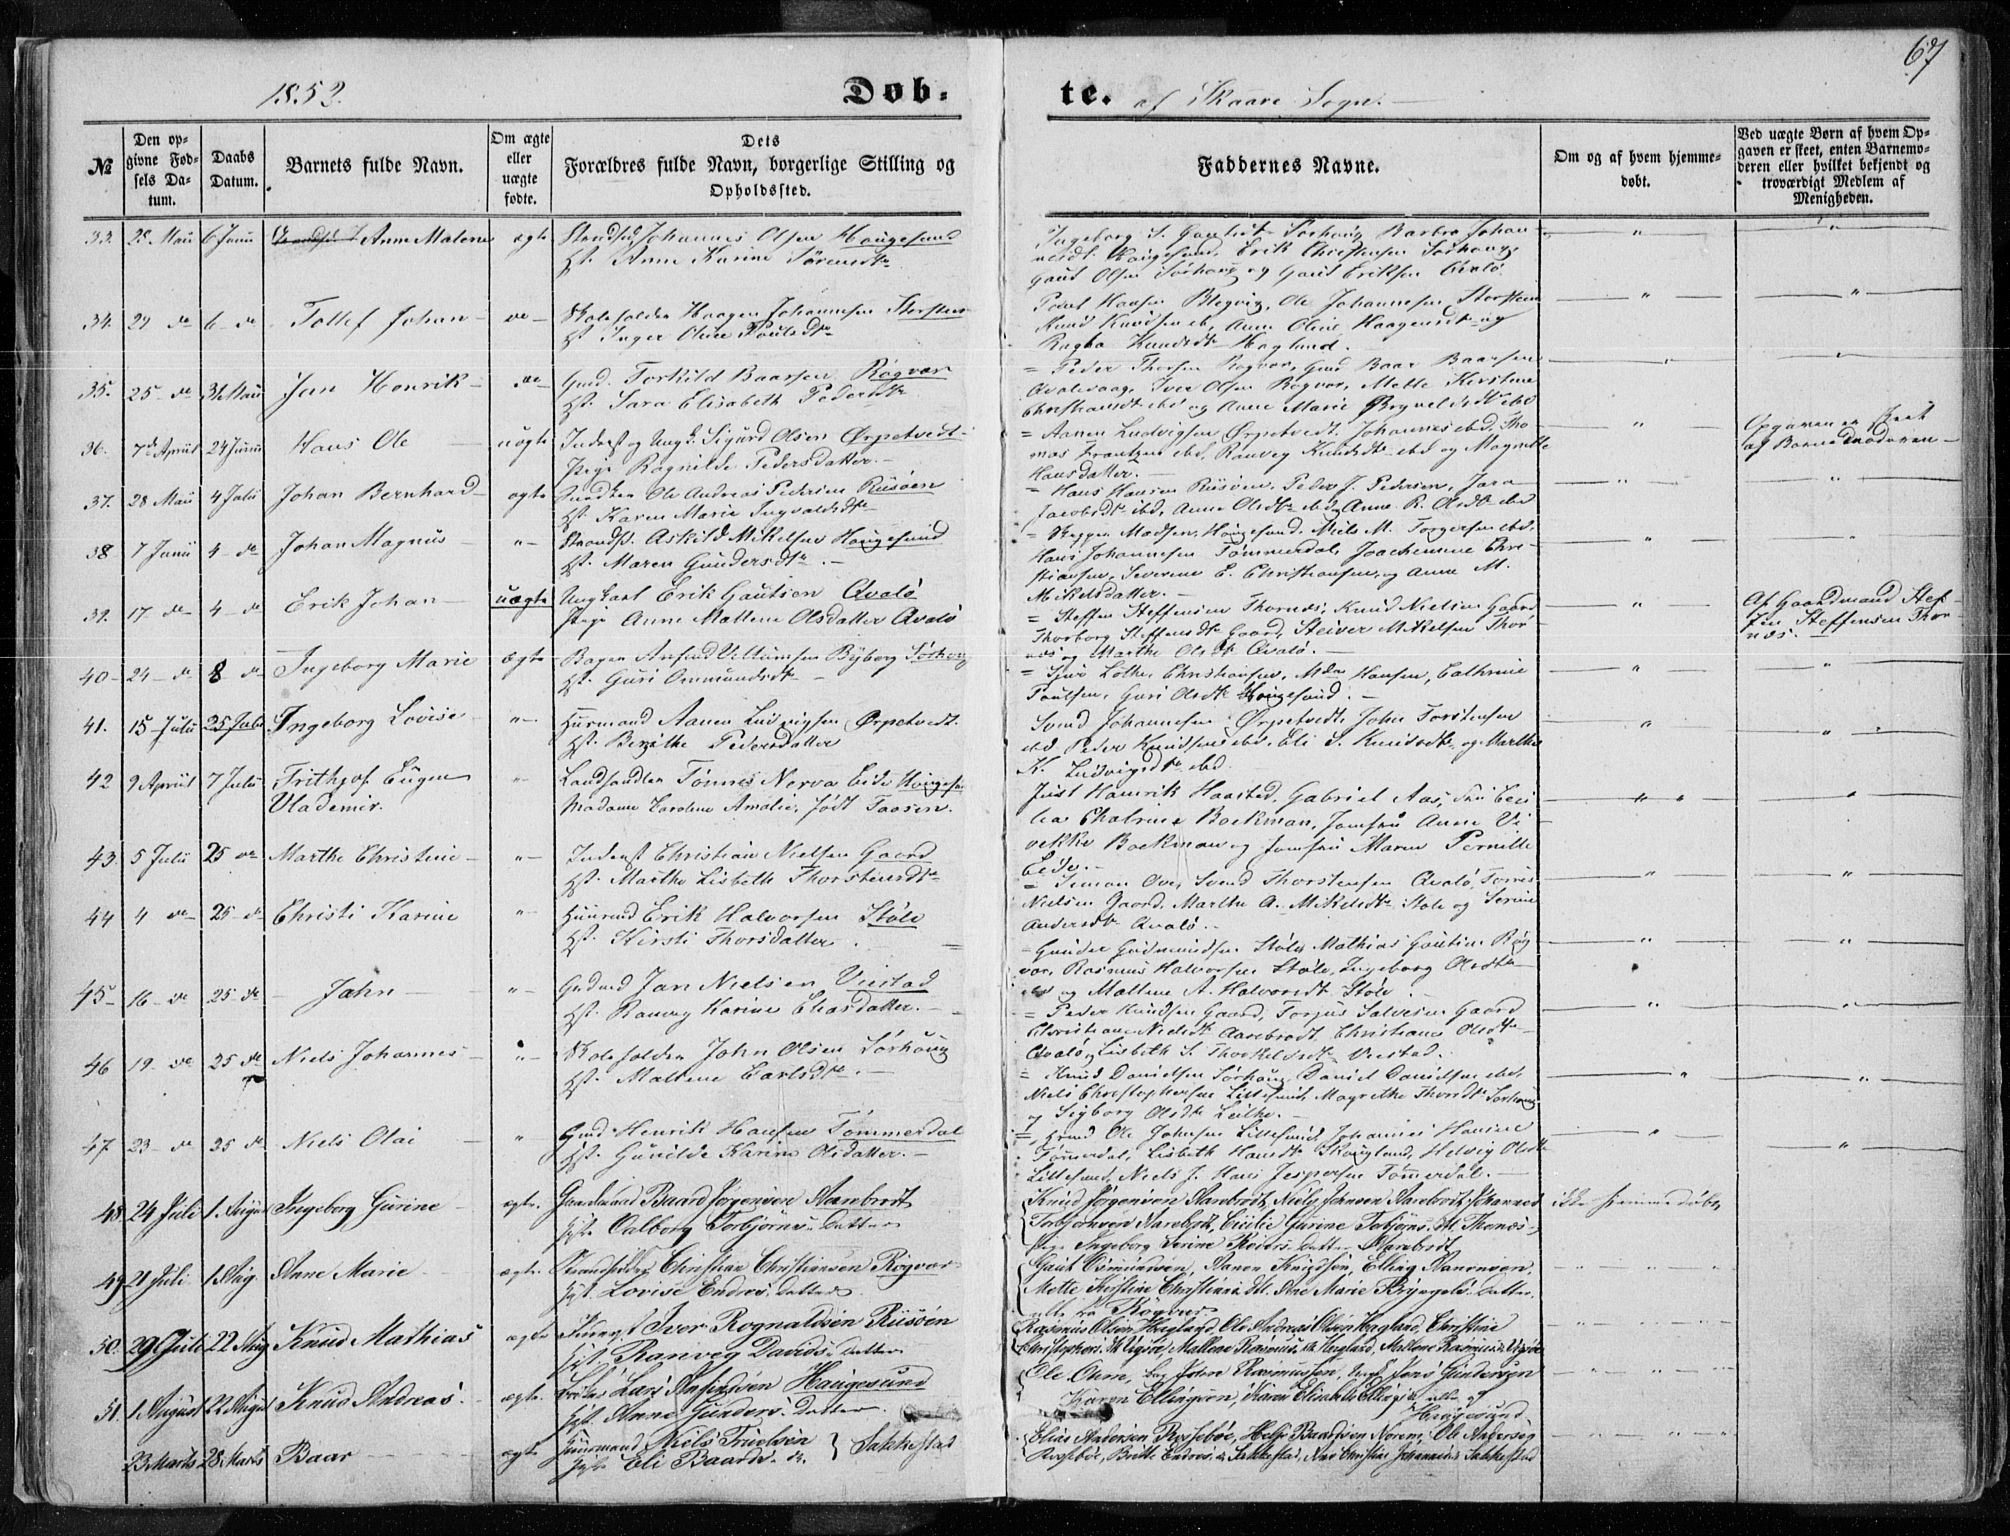 67
1852.
Døb-
te.
af Skaare Sogn.
№
Den op-
givne Fød-
sels Da-
tum.
Daabs
Datum.
Barnets fulde Navn.
Om ægte
eller
uægte
fødte.
Dets
Forældres fulde Navn, borgerlige Stilling og
Opholdssted.
Faddernes Navne.
Om og af hvem hjemme-
døbt.
Ved uægte Børn af hvem Op-
gaven er skeet, enten Barnemo-
deren eller hvilket bekjendt og
troværdigt Medlem af
Menigheden.
33. 28 Maii 6 Junii Anne Malene ægte Strands. Johannes Olsen Haugesund
Hst. Anne Karine Sørensdtr
Ingeborg S. Gautsdt Sørhoug Barbro Johan-
nesdt. Haugesund, Erik Christensen Sørhoug
Gaut Olsen Sørhoug og Gaut Eriksen Qvalø
34. 29 do 6 do Tollef Johan do Skoleholder Haagen Johannesen Storsteen
Hst. Inger Oline Poulsdtr
Poul Hansen Blegvig, Ole Johannesen Storsteen
Knud Knudsen ibd, Anne Oline Haagensdt og
Ragba Knudsdt Hagland.
35. 25 do 31 Maii Jan Henrik do Gmd. Torkild Baarsen Røgvær
Hst. Sara Elisabeth Pedersdtr
Peder Thorsen Røgvær, Gmd Baar Baarsen
Qvalevaag, Iver Olsen Røgvær, Mette Kirstine
Christiansdt ibd og Anne Marie Brynelsdt ibd
36. 7de April 24 Junii Hans Ole uægte Inderst og Ungk. Sigurd Olsen Ørpetvedt
Pige Ragnilde Pedersdatter.
Aanen Ludvigsen Ørpetvedt, Johannes ibd, Tho-
mas Frantzen ibd, Ranveg Knudsdt ibd og Magnille
Hansdatter.
Opgaven er skeet
af Barnemoderen
37. 28 Maii 4 Julii Johan Bernhard ægte Ole Andreas Pedersen Riisøen
Hst. Karen Marie Ingvaldsdtr
Hans Hansen Riisøen, Peder J. Pedersen, Sara
Jacobsdt ibd, Anne Olsdt ibd, Anne R. Olsdt ibd
38 7 Junii 4 do Johan Magnus Strands. Askild Mikelsen Haugesund
Hst. Maren Gundersdtr
Madsen, Haugesund, Niels M. Torgersen ibd,
Hans Johannesen Tømmerdal, Joachemine Chri-
stiansen, Severine E. Christiansen, og Anne M.
Mikelsdatter.
39. 17 do 4 do Erik Johan uægte Ungkarl Erik Gautsen Qvalø
Pige Anne Mallene Olsdatter Qvalø
Steffen Steffensen Thornes, Knud Nielsen Gaard
Thorborg Steffensdt Gaard, Steiner Mikelsen Thor-
næs og Marthe Olsdt Qvalø.
Af Gaardmand Stef-
fen Steffensen Thor-
næs.
40 24 do 8 do Ingeborg Marie ægte Bager Villumsen Byberg Sørhoug
Hst. Guri Ommundsdt
Sjur Lothe, Christiansen, Mda Hansen, Cathrine
Poulsen, Guri Olsdt Haugesund.
41. 15 Julii 25 Julii Ingeborg Lovise Huusmand Aanen Ludvigsen Ørpetvedt.
Hst. Berithe Pedersdatter
Svend Johannesen Ørpetvedt, John Torstensen
ibd Peder Knudsen ibd, Eli S. Knudsdt og Marthe
K. Ludvigsdt ibd
42 9 April 7 Julii Frithjof Eugen
Vlademir.
Landhandler Tønnes Nerva Eide Haugesund
Madame Caroline Amalie, født Faasen.
Just Henrik Haasted, Gabriel Aas, Cecilia
Chatrine Boekman, Jomfru Anne Vi-
vekke Boekman og Jomfru Maren Pernille
Eide.
43. 5 Julii 25 do Marthe Christine Inderst Christian Nielsen Gaard
Hst. Marthe Lisbeth Thorstensdtr
Simon Ove, Svend Thorstensen Qvalø, Torres
Nielsen Gaard, Marthe A. Mikelsdt Støle og Serine
Andersdt Qvalø.
44 4 do 25 do Christi Karine Huusmd Erik Halvorsen Støle
Hst. Kirsti Thorsdatter
Gunder Gudmundsen Støle, Mathias Gautsen Røg-
vær, Rasmus Halvorsen Støle, Ingeborg Olsdtr
ibd og Mallene A. Halvorsdt Støle
45 16 do 25 do Jahn Gmd Jan Nielsen Viestad
Hst. Ranveg Karine Eliasdatter.
Peder Knudsen Gaard, Torjus Salvesen Gaard
Christiane Nielsdt Aarebrodt, Christiane Olsdtr
Qvalø, Lisbeth S. Thorkelsdt Viestad.
46 19 do 25 do Niels Johannes Skoleholder John Olsen Sørhoug
Hst. Mallene Carlsdtr
Knud Danielsen Sørhoug, Daniel Danielsen ibd,
Niels Christophersen Lillesund, Magrethe Thorsdt Sørhoug
og Sigborg Olsdt Lothe.
47. 23 do 25 do Niels Olai Gmd Henrik Hansen Tømmerdal
Hst. Gunilde Karine Olsdatter.
Ole Johnsen Lillesund, Johannes Hansen
Tømmerdal, Lisbeth Hansdt Skougland, Helvig Olsdt
Lillesund, Niels J. Hans Jespersen Tømmerdal.
48 24 Juli 1 August Ingeborg Gurine ægte. Gaardmand Baard Jørgensen Aarebrodt
Hst. Valborg Torbjørns-Datter
Knud Jørgensen Aarebrodt, Niels Johnsen Aarebrodt, Johannes
Torbjørnsen Aarebrodt, Cicilie Gurine Torbjørns.dt. Thornes
Pige Ingeborg Serine Datter Aarebrodt
ikke hjemmedøbt
49 21 Juli 1 Aug. Anne Marie ægte. Strandsidder Christian Christiansen Røgvær
Hst. Lovise Endres. Datter
Gaut Osmundsen, Aanen Knudsen, Elling Aanensen,
Mette Kirstine Christians.dt. Ane Marie Bryngels. Datter
alle fra Røgvær
50. 29 Juli 22 Aug Knud Mathias ægte Iver Rognaldsen Riisøen
Hst. Ranveg Davids. Datter
Rasmus Olsen Hagland, Ole Andreas Olsen Hagland, Christine
Christophers.dt Vigsøe, Mallene Rasmus.dt. Hagland, Mallene Rasmus.dt
51. 1 August 22 August Knud Andreas. ægte. Lars Haugesund
Hst. Anne Gunders. Datter.
Ole Ohm, Johan Rasmussen, Jens Gundersen
Karen Ellingsen, Karen Elisabeth alle af
Haugesund
23 Marts 28 Marts Baar ægte Huusmand Niels Truelsen
Hst. Eli Baards. dr. } Sakkestad
Elias Andersen Rossebøe, Helje Baardsen Norem, Ole Andersen
Rossebøe, Britte Endres.dt Sakkestad, Ane Christine Johannes. Sakkestad